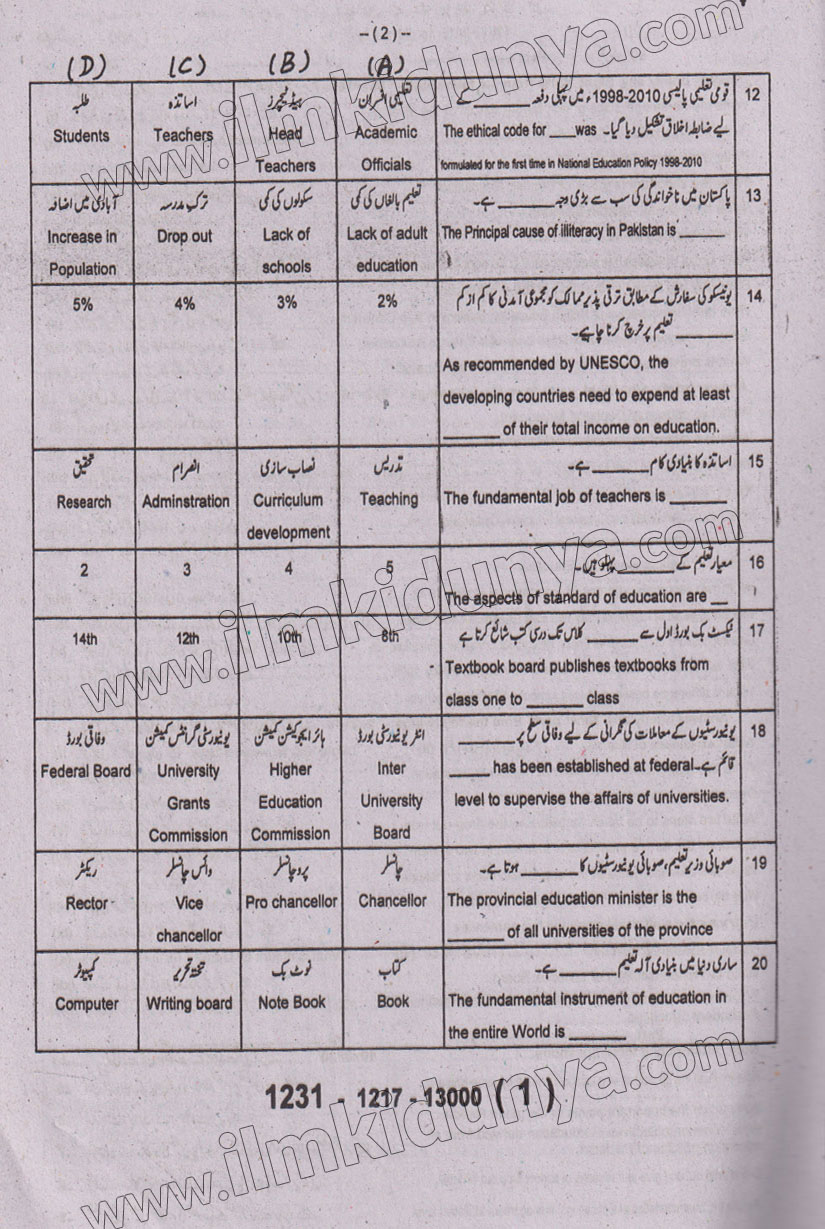 --(2)--
(D) (C) (B) (A)
12
قومی تعلیمی پالیسی 1998-2010ء میں پہلی دفعہ ______ کے
لیے ضابطہ اخلاق تشکیل دیا گیا۔
The ethical code for ____was
formulated for the first time in National Education Policy 1998-2010
تعلیمی افسران
Academic
Officials
ہیڈ ٹیچرز
Head
Teachers
اساتذہ
Teachers
طلبہ
Students
13
پاکستان میں ناخواندگی کی سب سے بڑی وجہ ______ ہے۔
The Principal cause of illiteracy in Pakistan is ______
تعلیم بالغاں کی کمی
Lack of adult
education
سکولوں کی کمی
Lack of
schools
ترک مدرسہ
Drop out
آبادی میں اضافہ
Increase in
Population
14
یونیسکو کی سفارش کے مطابق ترقی پذیر ممالک کو مجموعی آمدنی کا کم از کم
______ تعلیم پر خرچ کرنا چاہیے۔
As recommended by UNESCO, the
developing countries need to expend at least
_______ of their total income on education.
2%
3%
4%
5%
15
اساتذہ کا بنیادی کام ______ ہے۔
The fundamental job of teachers is _______
تدریس
Teaching
نصاب سازی
Curriculum
development
انصرام
Adminstration
تحقیق
Research
16
معیار تعلیم کے ______ پہلو ہیں۔
The aspects of standard of education are __
5
4
3
2
17
ٹیکسٹ بک بورڈ اول سے ______ کلاس تک درسی کتب شائع کرتا ہے
Textbook board publishes textbooks from
class one to _______ class
8th
10th
12th
14th
18
یونیورسٹیوں کے معاملات کی نگرانی کے لیے وفاقی سطح پر ______
قائم ہے۔
_____ has been established at federal
level to supervise the affairs of universities.
انٹر یونیورسٹی بورڈ
Inter
University
Board
ہائر ایجوکیشن کمیشن
Higher
Education
Commission
یونیورسٹی گرانٹس کمیشن
University
Grants
Commission
وفاقی بورڈ
Federal Board
19
صوبائی وزیر تعلیم، صوبائی یونیورسٹیوں کا ______ ہوتا ہے۔
The provincial education minister is the
_______ of all universities of the province
چانسلر
Chancellor
پرو چانسلر
Pro chancellor
وائس چانسلر
Vice
chancellor
ریکٹر
Rector
20
ساری دنیا میں بنیادی آلہ تعلیم ______ ہے۔
The fundamental instrument of education in
the entire World is _______
کتاب
Book
نوٹ بک
Note Book
تختہ تحریر
Writing board
کمپیوٹر
Computer
1231 - 1217 - 13000 ( 1 )
www.ilmkidunya.com
www.ilmkidunya.com
www.ilmkidunya.com